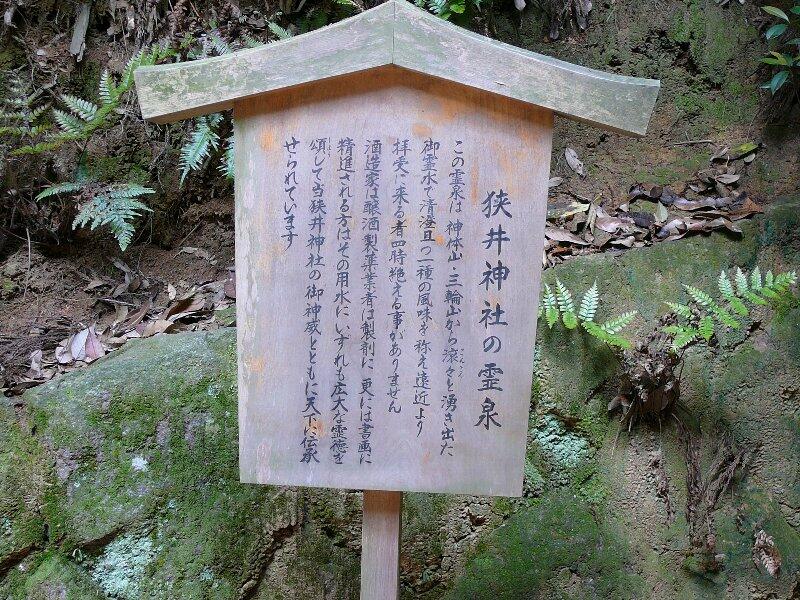 狭井神社の霊泉
この霊泉は 神体山・三輪山から滾々と湧き出た
こんこん
御霊水で清澄且つ一種の風味を称え遠近より
拝受に来る者四時絶える事がありません
酒造家は醸酒 製薬業者は製剤に 更には書画に
精進される方はその用水に いずれも広大な霊徳を
頌して当狭井神社の御神威とともに天下に伝承
せられています